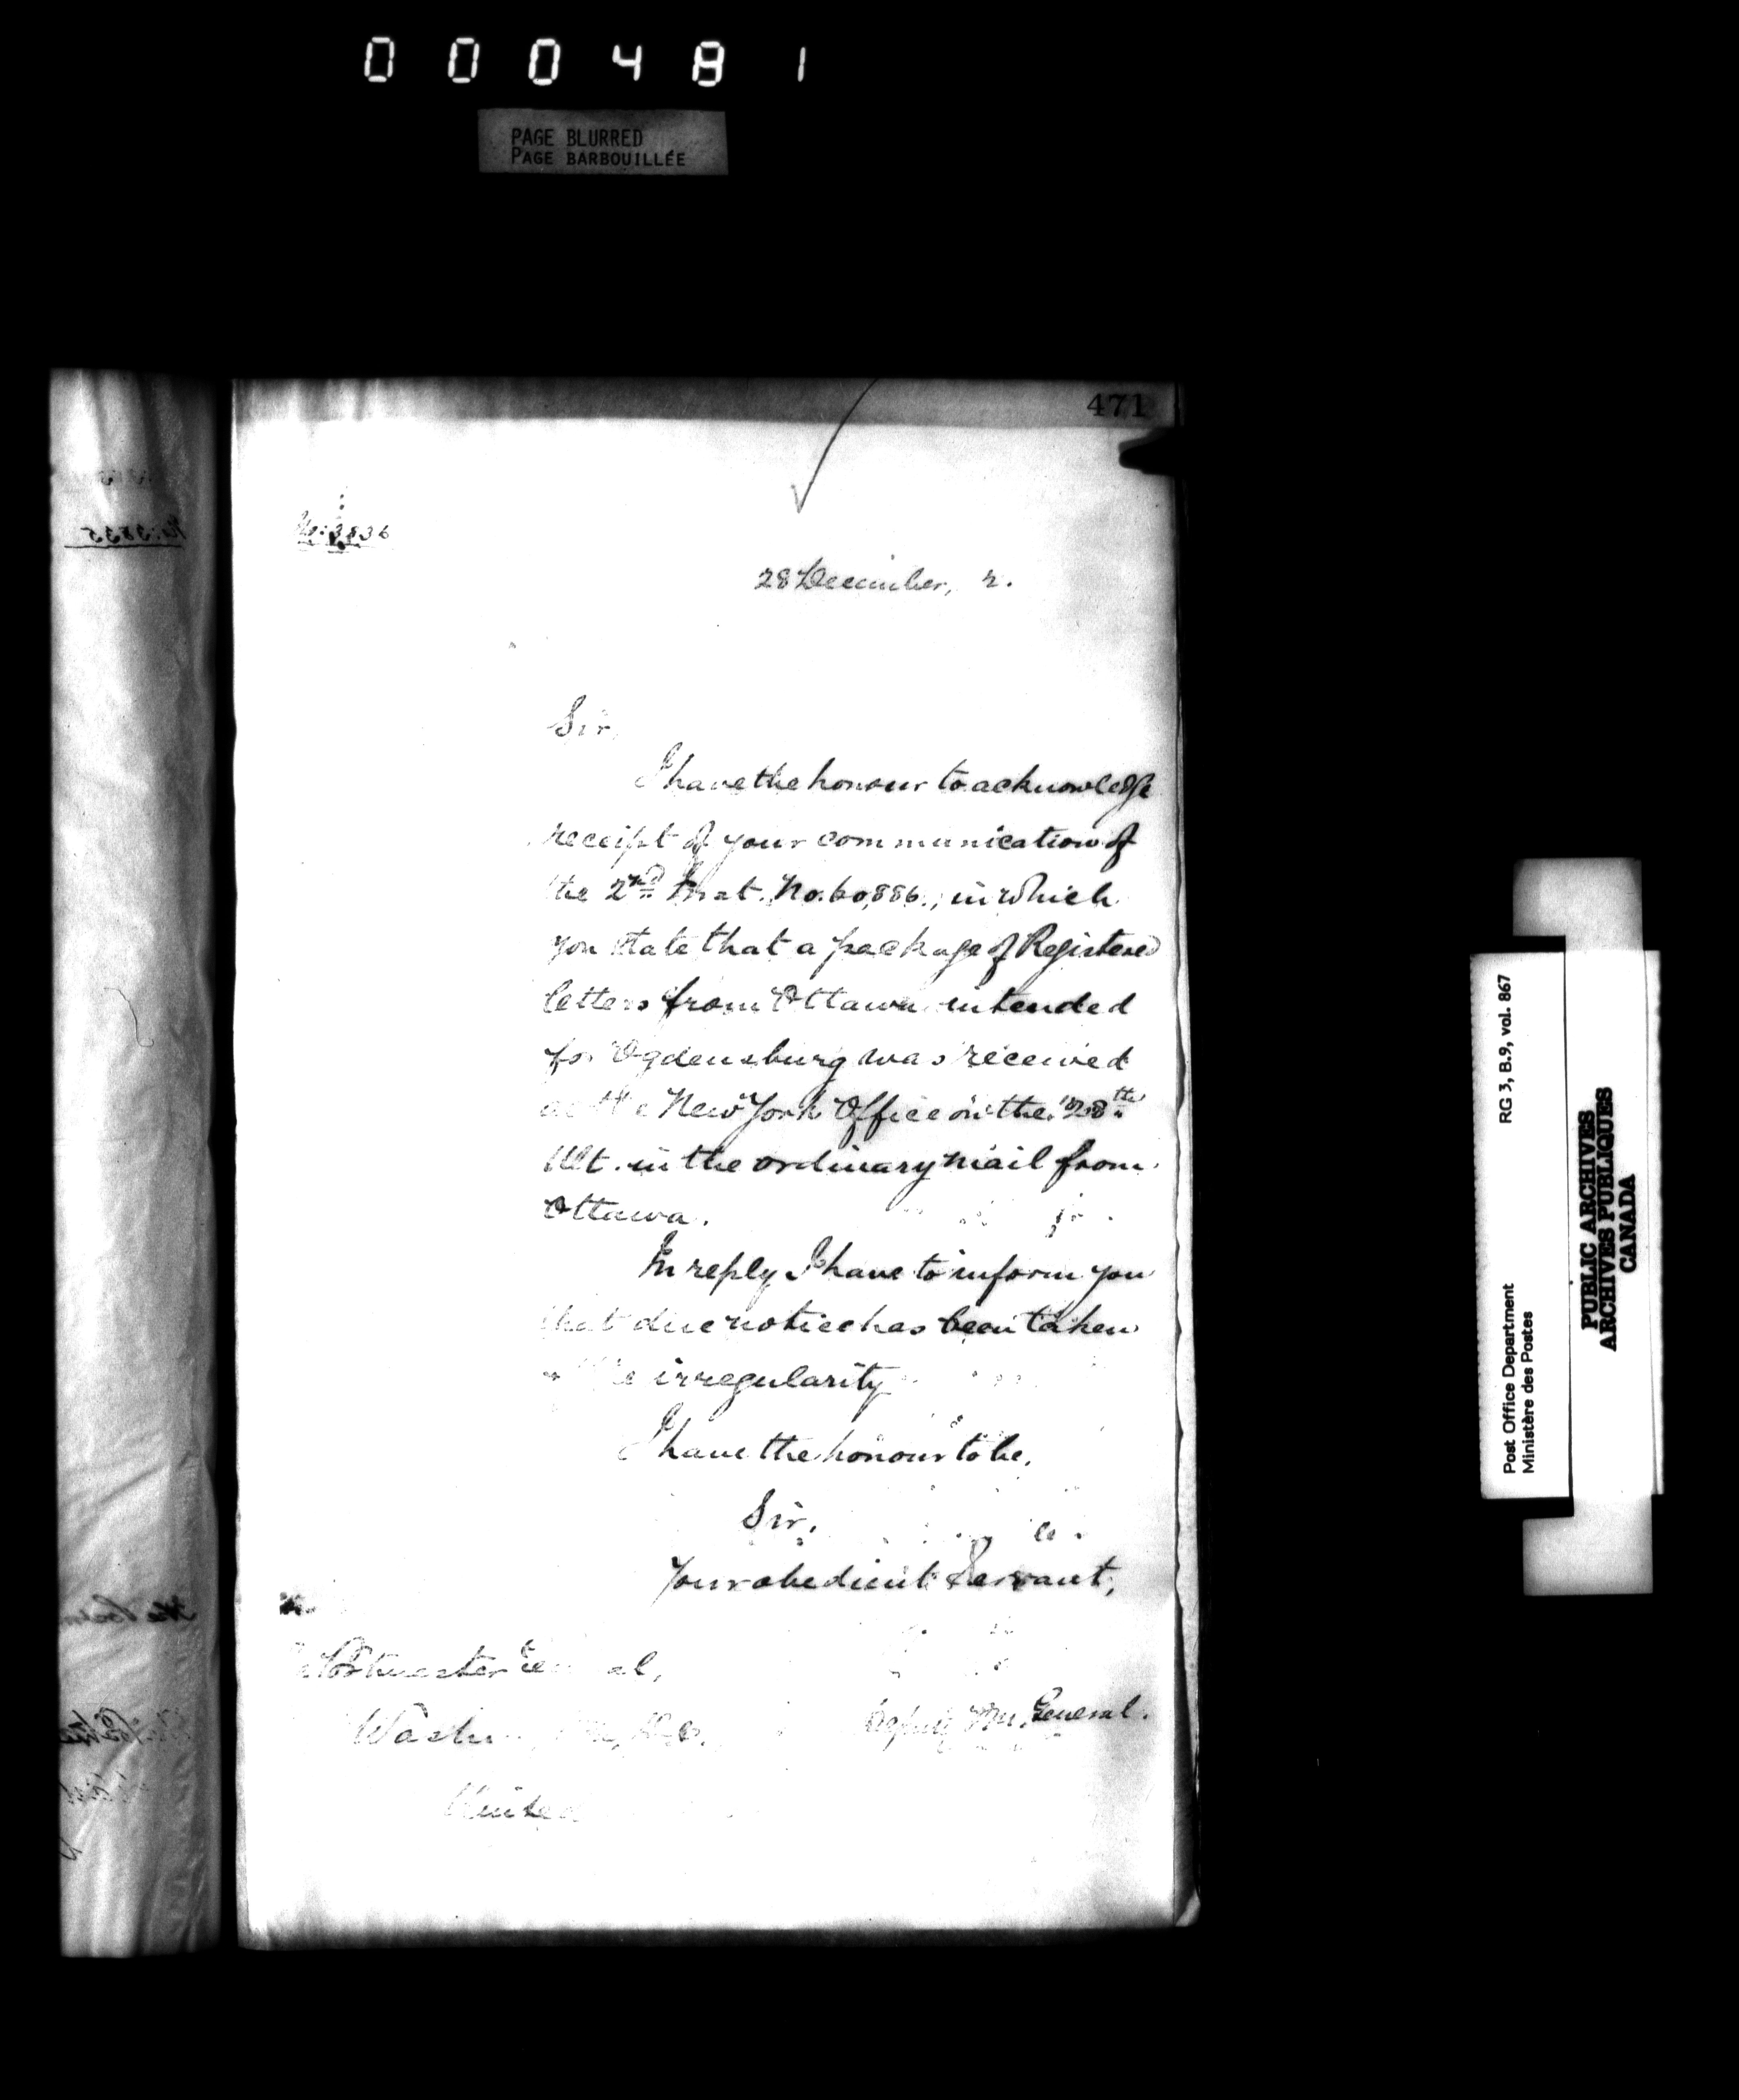 000481
PAGE BLURRED
PAGE BARBOUILLÉE
471
No: 3836
28 December, 2.
Sir,
I have the honour to acknowledge
receipt of your communication of
the 2nd Inst. No. 60,886., in which
you state that a package of Registered
letters from Ottawa intended
for Ogdensburg was received
at the New York Office on the 28th
Ult. in the ordinary mail from
Ottawa.
In reply I have to inform you
that due notice has been taken
irregularity
I have the honour to be,
Sir,
Your obedient Servant,
Postmaster
Deputy P.M. General.
United
No: 3835
RG 3, B.9, vol. 867
Post Office Department
Ministère des Postes
PUBLIC ARCHIVES
ARCHIVES PUBLIQUES
CANADA